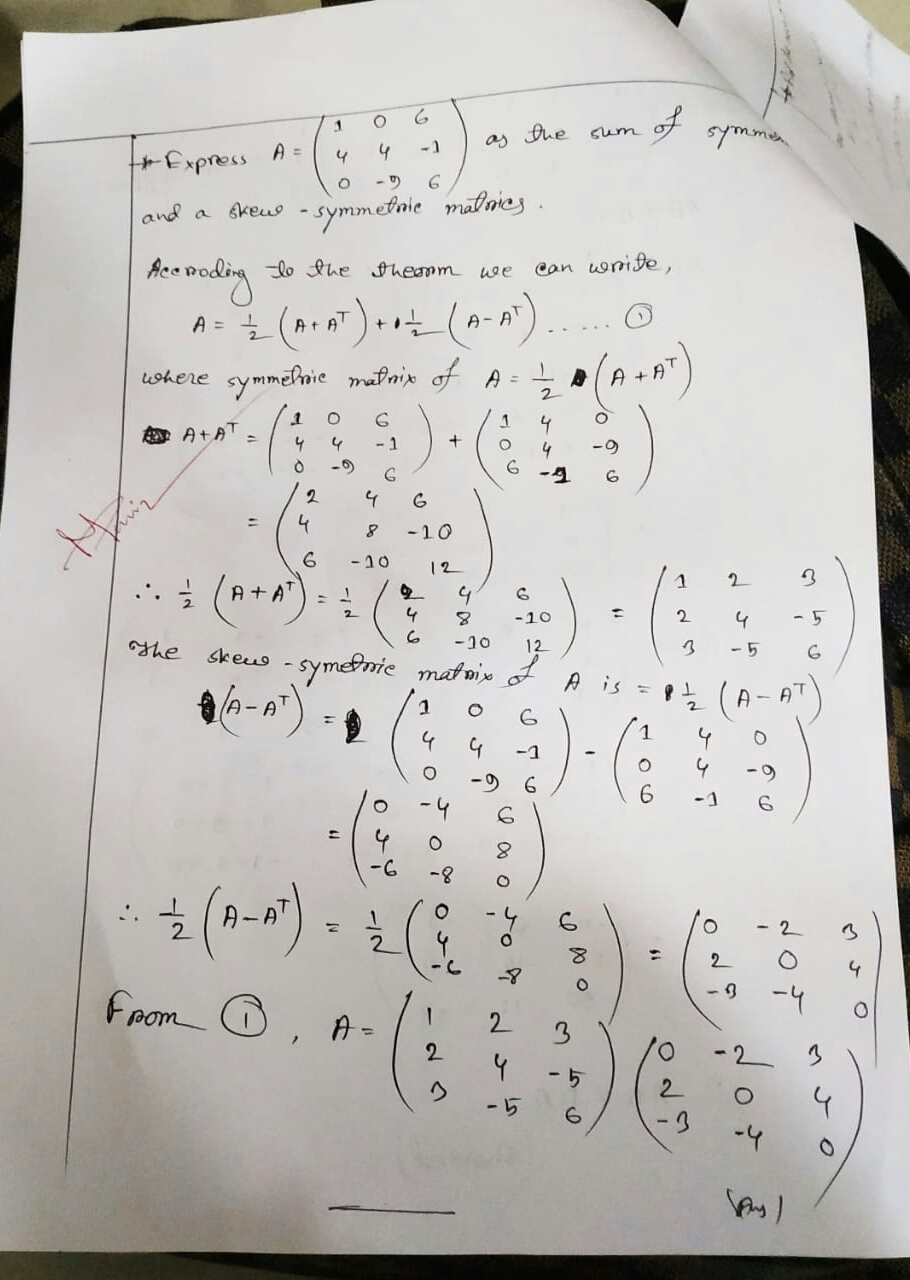 * Express A = ( 1 0 6 ; 4 4 -1 ; 0 -9 6 ) as the sum of symme
and a skew-symmetric matrices.
According to the theorm we can write,
A = 1/2 (A+A^T) + 1/2 (A-A^T) ..... ①
where symmetric matrix of A = 1/2 (A+A^T)
A+A^T = ( 1 0 6 ; 4 4 -1 ; 0 -9 6 ) + ( 1 4 0 ; 0 4 -9 ; 6 -1 6 )
= ( 2 4 6 ; 4 8 -10 ; 6 -10 12 )
∴ 1/2 (A+A^T) = 1/2 ( 2 4 6 ; 4 8 -10 ; 6 -10 12 ) = ( 1 2 3 ; 2 4 -5 ; 3 -5 6 )
The skew-symetric matrix of A is = 1/2 (A-A^T)
(A-A^T) = ( 1 0 6 ; 4 4 -1 ; 0 -9 6 ) - ( 1 4 0 ; 0 4 -9 ; 6 -1 6 )
= ( 0 -4 6 ; 4 0 8 ; -6 -8 0 )
∴ 1/2 (A-A^T) = 1/2 ( 0 -4 6 ; 4 0 8 ; -6 -8 0 ) = ( 0 -2 3 ; 2 0 4 ; -3 -4 0 )
From ①, A = ( 1 2 3 ; 2 4 -5 ; 3 -5 6 ) ( 0 -2 3 ; 2 0 4 ; -3 -4 0 )
(Ans)